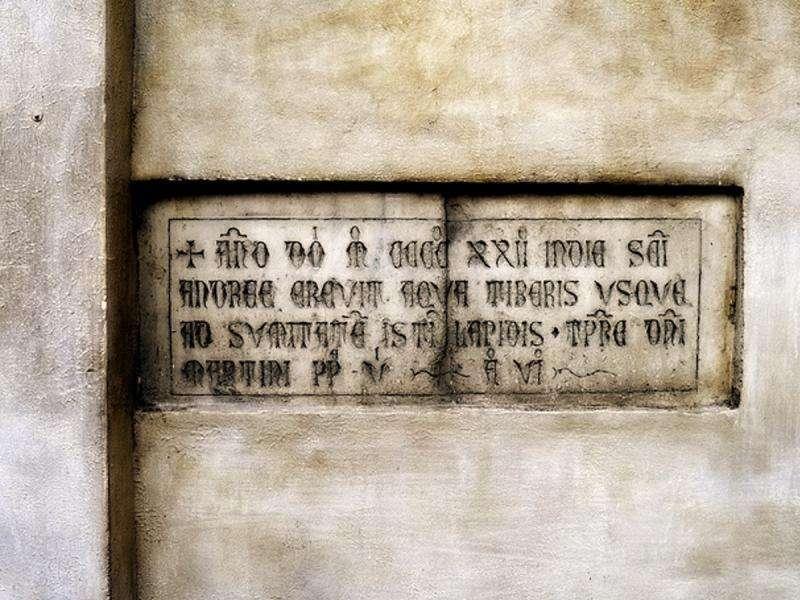 + AÑO DÕ M̊ CCCC̊ XXII INDIE SCĪ
ANDREE CREVIT AQVA TIBERIS VSQVE
AD SVMITATĒ ISTĪ LAPIDIS • TP̄RE DN̄I
MARTINI PP̊ V̊ Å VI̊